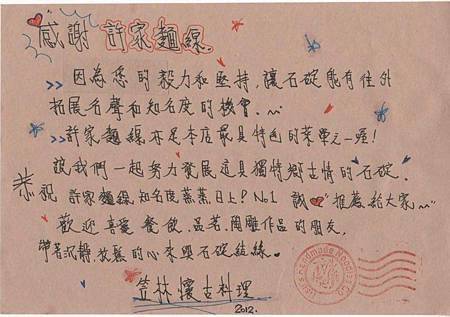 感謝 許家麵線
>> 因為您的毅力和堅持,讓石碇能有往外
拓展名聲和知名度的機會.~
>> 許家麵線亦是本店最具特色的菜單之一喔!
說我們一起努力發展這具獨特鄉古情的石碇.
恭祝 許家麵線知名度蒸蒸日上? No1 誠 推薦給大家~
歡迎喜愛餐飲.品茗.陶雕作品的朋友.
帶著沉靜.放鬆的心來與石碇結緣.
笠林懷古料理
2012.